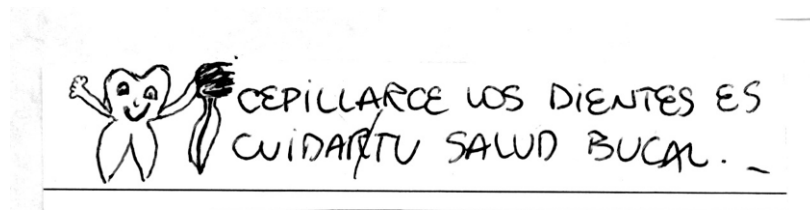 CEPILLARCE LOS DIENTES ES
CUIDAR/TU SALUD BUCAL. _